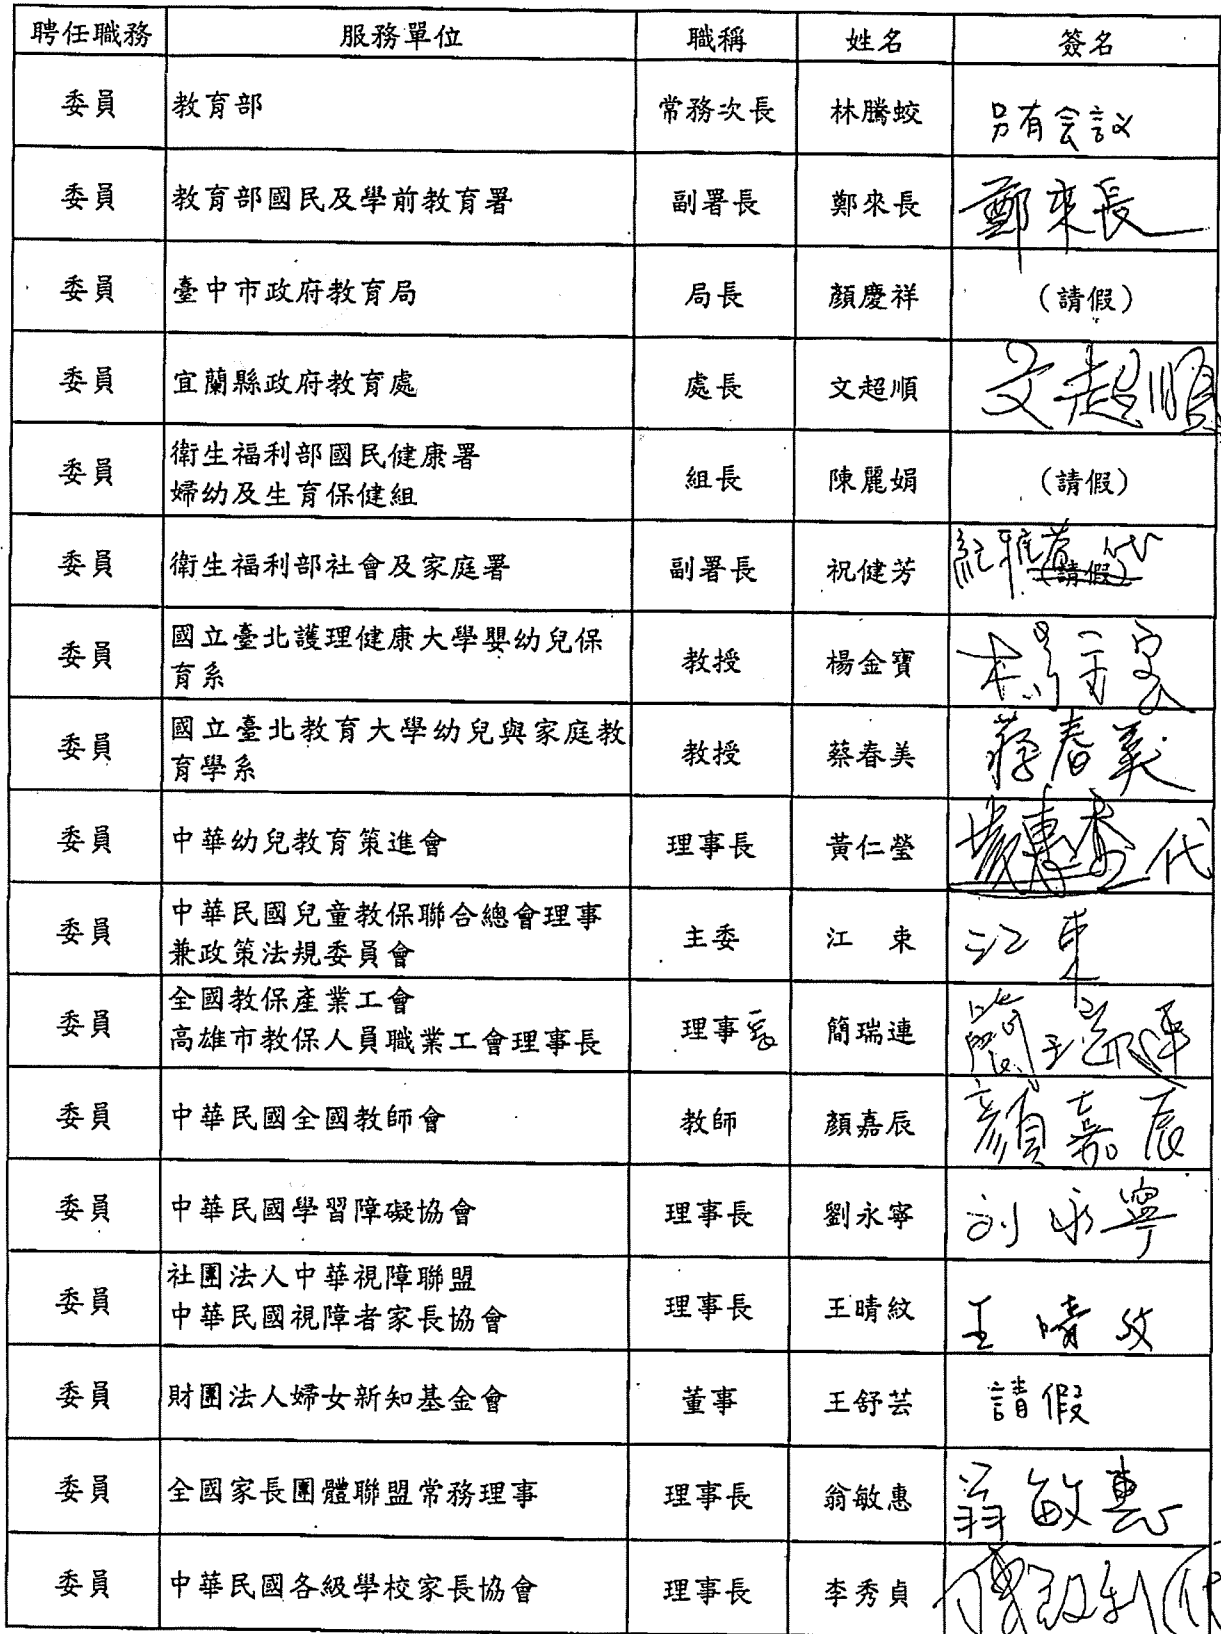 聘任職務 服務單位 職稱 姓名 簽名
委員 教育部 常務次長 林騰蛟 另有会議
委員 教育部國民及學前教育署 副署長 鄭來長 鄭來長
委員 臺中市政府教育局 局長 顏慶祥 (請假)
委員 宜蘭縣政府教育處 處長 文超順 文超順
委員 衛生福利部國民健康署
婦幼及生育保健組 組長 陳麗娟 (請假)
委員 衛生福利部社會及家庭署 副署長 祝健芳 (請假) 代
委員 國立臺北護理健康大學嬰幼兒保
育系 教授 楊金寶
委員 國立臺北教育大學幼兒與家庭教
育學系 教授 蔡春美 蔡春美
委員 中華幼兒教育策進會 理事長 黃仁瑩 代
委員 中華民國兒童教保聯合總會理事
兼政策法規委員會 主委 江東 江東
委員 全國教保產業工會
高雄市教保人員職業工會理事長 理事長 簡瑞連 簡瑞連
委員 中華民國全國教師會 教師 顏嘉辰 顏嘉辰
委員 中華民國學習障礙協會 理事長 劉永寧 刘永寧
委員 社團法人中華視障聯盟
中華民國視障者家長協會 理事長 王晴紋 王晴紋
委員 財團法人婦女新知基金會 董事 王舒芸 請假
委員 全國家長團體聯盟常務理事 理事長 翁敏惠 翁敏惠
委員 中華民國各級學校家長協會 理事長 李秀貞